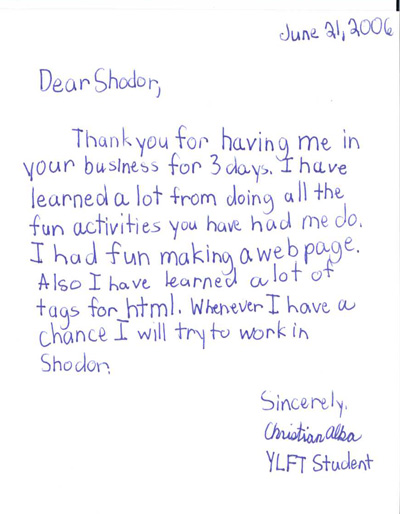 June 21, 2006
Dear Shodor,
Thank you for having me in
your business for 3 days. I have
learned a lot from doing all the
fun activities you have had me do.
I had fun making a web page.
Also I have learned a lot of
tags for html. Whenever I have a
chance I will try to work in
Shodor.
Sincerely,
Christian Alba
YLFT Student